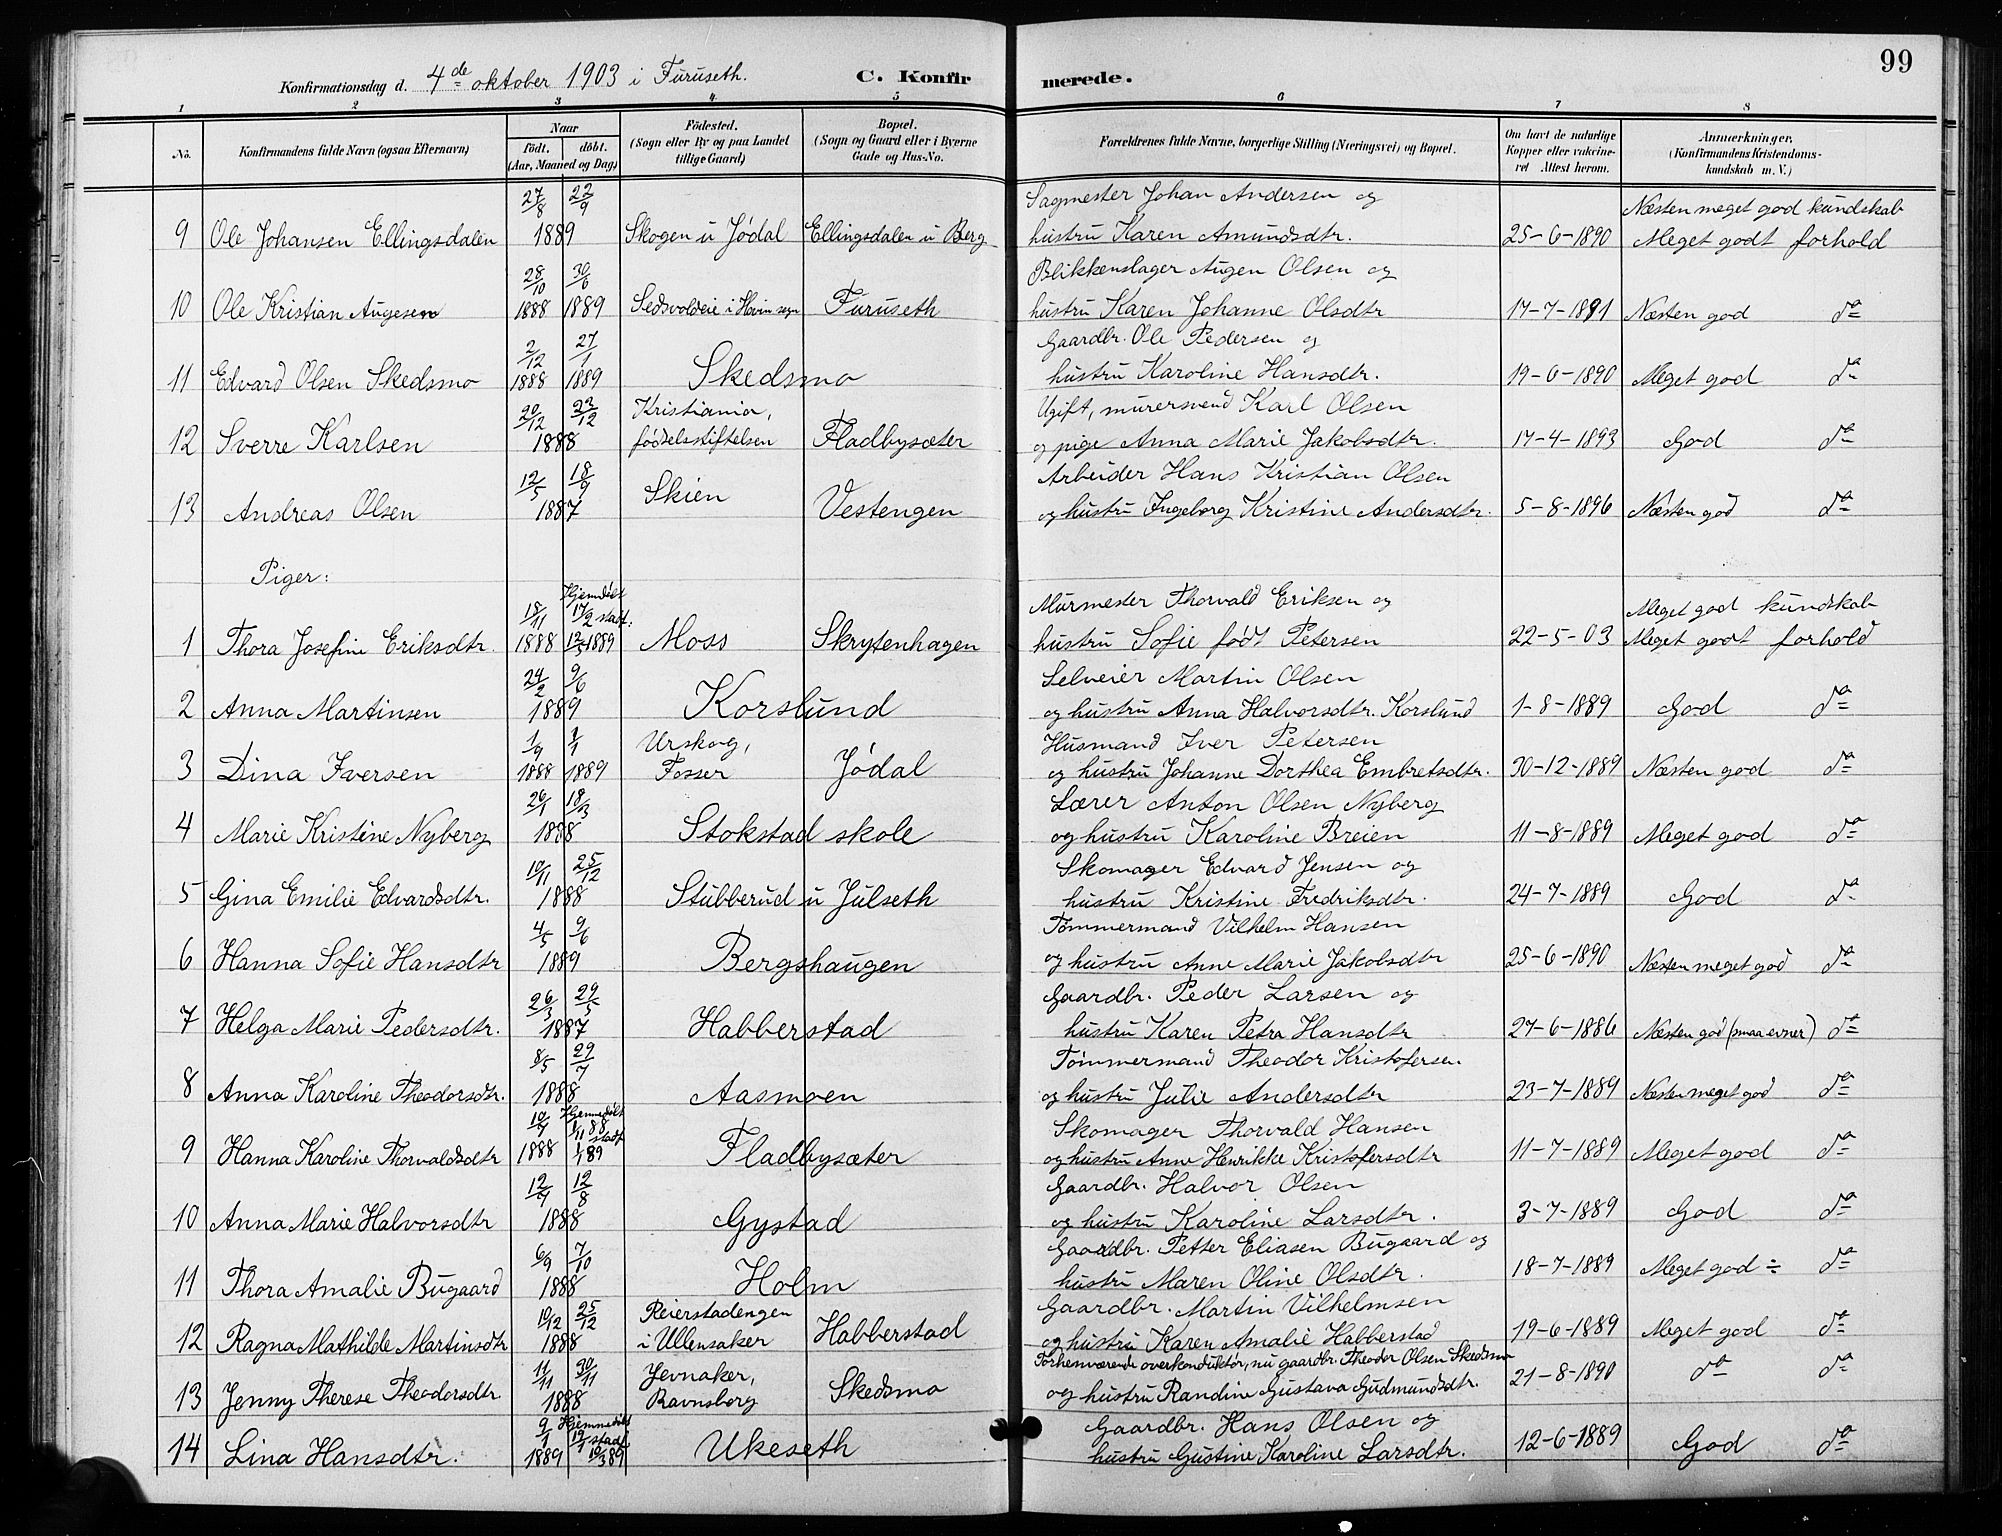 99
Konfirmationsdag d. 4de oktober 1903 i Furuseth. C. Konfirmerede.
1 2 3 4. 5 6 7 8
No. Konfirmandens fulde Navn (ogsaa Efternavn) Naar Født. døbt. (Aar, Maaned og Dag) Fødested. (Sogn eller By og paa Landet tillige Gaard) Bopæl. (Sogn og Gaard eller i Byerne Gade og Hus-No. Forældrenes fulde Navne, borgerlige Stilling (Næringsvei) og Bopæl. Om havt de naturlige Kopper eller vaccineret Attest herom. Anmærkninger. (Konfirmandens Kristendomskundskab m. V.)
27/8 22/9 Sagmester Johan Andersen og Næsten meget god kundskab
9 Ole Johansen Ellingsdalen 1889 Skogen u Jødal Ellingsdalen u Berg hustru Karen Amundsdtr. 25-6-1890 Meget godt forhold
28/10 30/6 Blikkenslager Augen Olsen og
10 Ole Kristian Augesen 1888 1889 Sedsvoldeie i Hovin sogn Furuseth hustru Karen Johanne Olsdtr 17-7-1891 Næsten god do
2/12 27/1 Gaardbr. Ole Pedersen og
11 Edvard Olsen Skedsmo 1888 1889 Skedsmo hustru Karoline Hansdtr. 19-6-1890 Meget god do
20/12 23/12 Kristiania, Ugift, murersvend Karl Olsen
12 Sverre Karlsen 1888 fødselsstiftelsen Fladbysæter og pige Anna Marie Jakobsdtr. 17-4-1893 God do
12/5 18/9 Arbeider Hans Kristian Olsen
13 Andreas Olsen 1887 Skien Vestengen og hustru Ingeborg Kristine Andersdtr. 5-8-1896 Næsten god do
Piger:
18/11 Hjemdøbt 17/2 stadf. Murmester Thorvald Eriksen og Meget god kundskab
1 Thora Josefine Eriksdtr. 1888 12/5 1889 Moss Skrytenhagen hustru Sofie født Petersen 22-5-03 Meget godt forhold
24/2 9/6 Selveier Martin Olsen
2 Anna Martinsen 1889 Korslund og hustru Anna Halvorsdtr. Korslund 1-8-1889 God do
1/9 1/1 Urskog, Husmand Iver Petersen
3 Dina Iversen 1888 1889 Fosser Jødal og hustru Johanne Dorthea Embretsdtr. 30-12-1889 Næsten god do
26/1 18/3 Lærer Anton Olsen Nyberg
4 Marie Kristine Nyberg 1888 Stokstad skole og hustru Karoline Breien 11-8-1889 Meget god do
10/11 25/12 Skomager Edvard Jensen og
5 Gina Emilie Edvardsdtr. 1888 Stubberud u Julseth hustru Kristine Fredriksdtr. 24-7-1889 God do
4/5 9/6 Tømmermand Vilhelm Hansen
6 Hanna Sofie Hansdtr 1889 Bergshaugen og hustru Anne Marie Jakobsdtr 25-6-1890 Næsten meget god do
26/3 29/5 Gaardbr. Peder Larsen og
7 Helga Marie Pedersdtr. 1887 Habberstad hustru Karen Petra Hansdtr 27-6-1886 Næsten god (smaa evner) do
8/5 29/7 Tømmermand Theodor Kristofersen
8 Anna Karoline Theodorsdtr. 1888 Aasmoen og hustru Julie Andersdtr 23-7-1889 Næsten meget god do
Hjemmedøbt 1/11 88 stadf. Skomager Thorvald Hansen
9 Hanna Karoline Thorvaldsdtr 1888 1/1 89 Fladbysæter og hustru Anne Henrikke Kristofersdtr 11-7-1889 Meget god do
12/8 Gaardbr. Halvor Olsen
10 Anna Marie Halvorsdtr 1888 Gystad og hustru Karoline Larsdtr. 3-7-1889 God do
6/9 7/10 Gaardbr. Petter Eliasen Bugaard og
11 Thora Amalie Bugaard 1888 Holm hustru Maren Oline Olsdtr. 18-7-1889 Meget god ÷ do
10/12 25/12 Reierstadengen Gaardbr. Martin Vilhelmsen
12 Ragna Mathilde Martinsdtr 1888 i Ullensaker Habberstad og hustru Karen Amalie Habberstad 19-6-1889 Meget god do
11/11 30/11 Jevnaker, Forhenværende overkonduktør, nu gaardbr. Theodor Olsen Skedsmo
13 Jenny Therese Theodorsdtr 1888 Ravnsborg Skedsmo og hustru Randine Gustava Gudmundsdtr. 21-8-1890 do do
9/1 Hjemmedøbt 19/1 stadf. Gaardbr. Hans Olsen og
14 Lina Hansdtr. 1889 10/3 89 Ukeseth hustru Gustine Karoline Larsdtr. 12-6-1889 God do